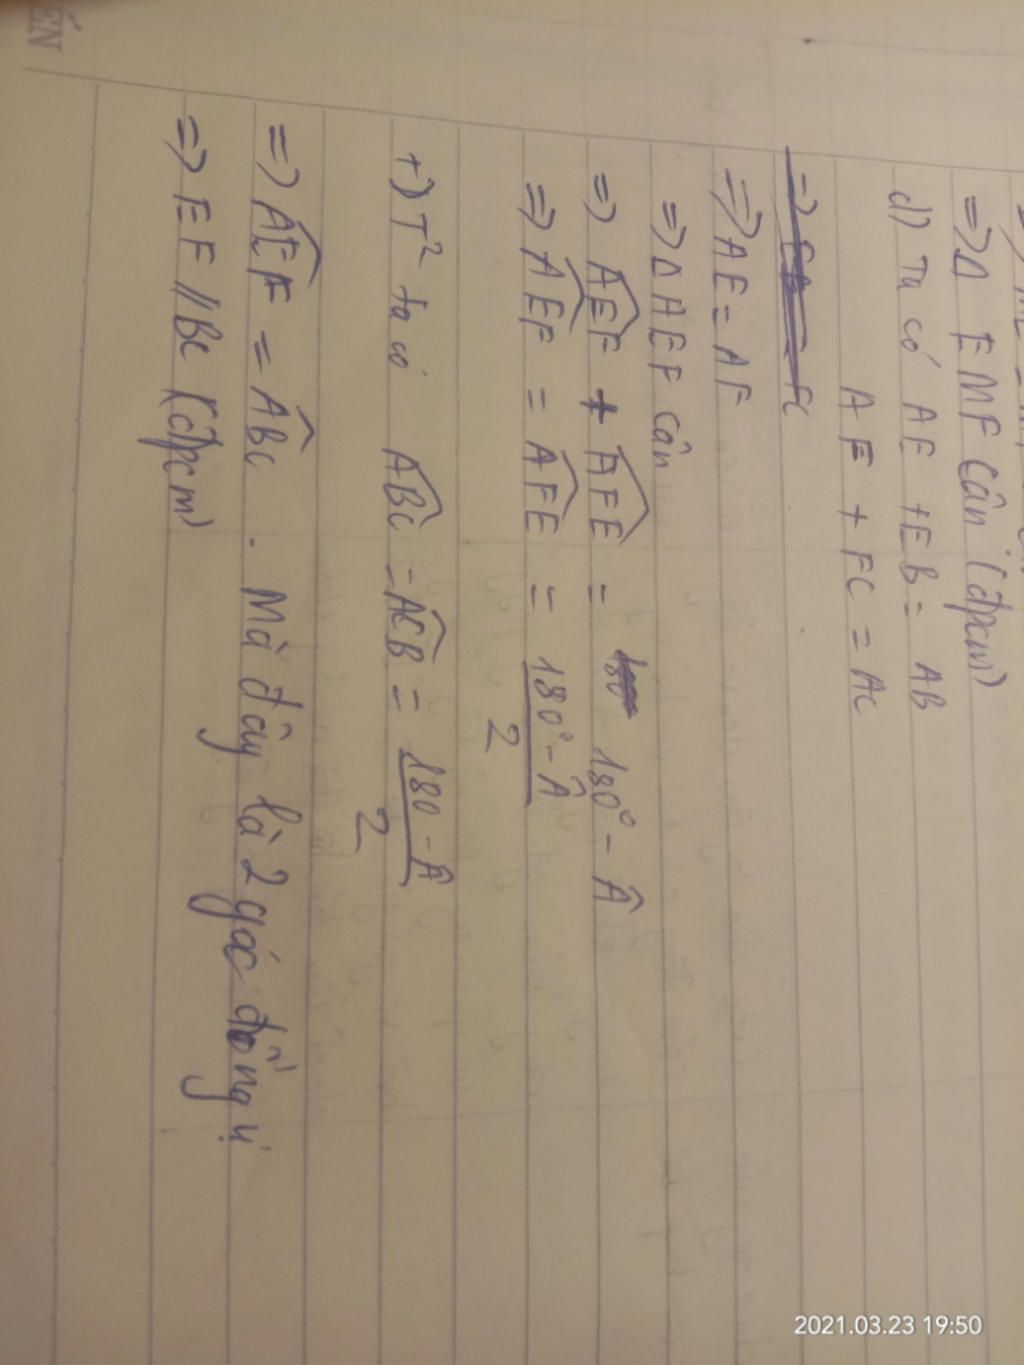 => Δ EMF cân (đpcm)
d) Ta có AE + EB = AB
AF + FC = AC
=> AE = AF
=> Δ AEF cân
=> AEF + AFE = 180° - Â
=> AEF = AFE = 180° - Â / 2
+) T² ta có ABC = ACB = 180 - Â / 2
=> AEF = ABC . Mà đây là 2 góc đồng vị
=> EF // BC (đpcm)
2021.03.23 19:50